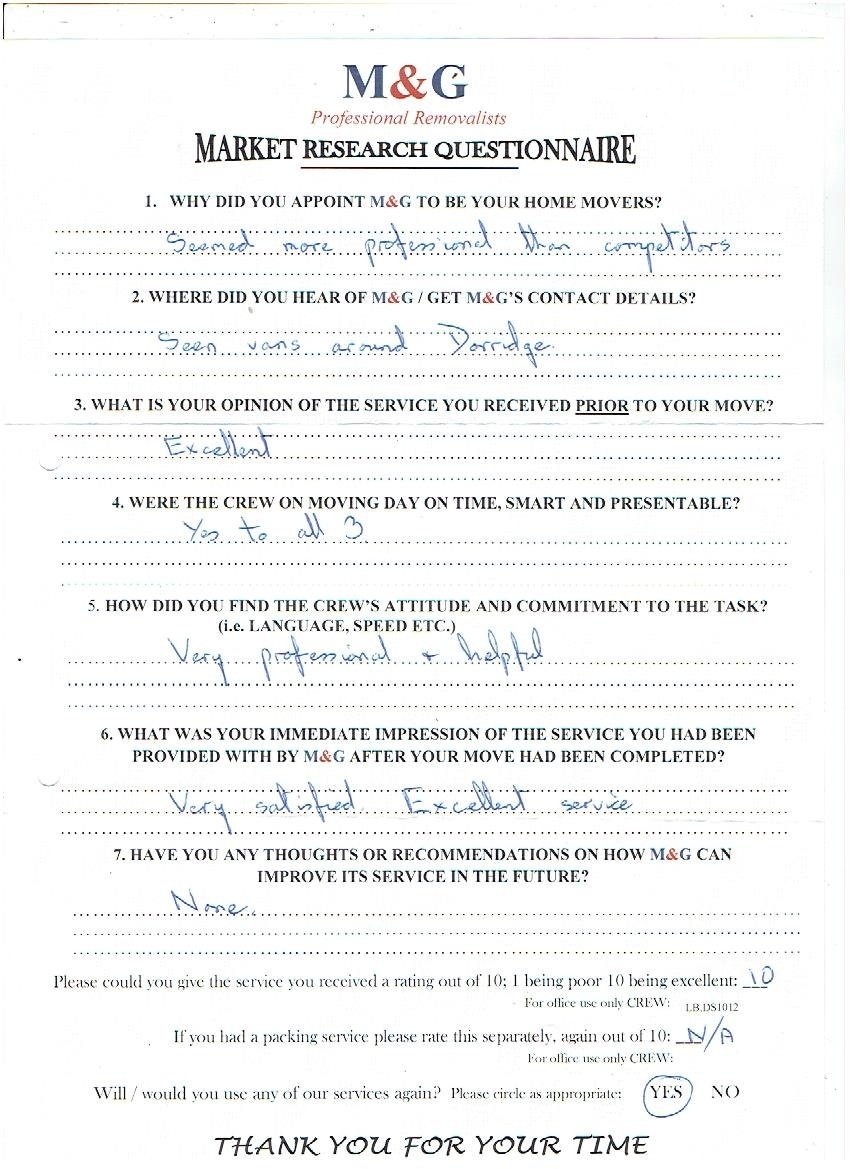 M&G
Professional Removalists
MARKET RESEARCH QUESTIONNAIRE
1. WHY DID YOU APPOINT M&G TO BE YOUR HOME MOVERS?
Seemed more professional than competitors
2. WHERE DID YOU HEAR OF M&G / GET M&G'S CONTACT DETAILS?
Seen vans around Dorridge.
3. WHAT IS YOUR OPINION OF THE SERVICE YOU RECEIVED PRIOR TO YOUR MOVE?
Excellent
4. WERE THE CREW ON MOVING DAY ON TIME, SMART AND PRESENTABLE?
Yes to all 3
5. HOW DID YOU FIND THE CREW'S ATTITUDE AND COMMITMENT TO THE TASK?
(i.e. LANGUAGE, SPEED ETC.)
Very professional + helpful
6. WHAT WAS YOUR IMMEDIATE IMPRESSION OF THE SERVICE YOU HAD BEEN
PROVIDED WITH BY M&G AFTER YOUR MOVE HAD BEEN COMPLETED?
Very satisfied. Excellent service
7. HAVE YOU ANY THOUGHTS OR RECOMMENDATIONS ON HOW M&G CAN
IMPROVE ITS SERVICE IN THE FUTURE?
None.
Please could you give the service you received a rating out of 10; 1 being poor 10 being excellent: 10
For office use only CREW: LB.DS1012
If you had a packing service please rate this separately, again out of 10: N/A
For office use only CREW:
Will / would you use any of our services again? Please circle as appropriate: YES NO
THANK YOU FOR YOUR TIME